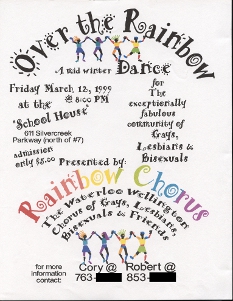 Over the Rainbow
A mid winter Dance
Friday March 12, 1999
@ 8:00 PM
at the
"School House"
611 Silvercreek
Parkway (north of #7)
admission
only $5.00
for
The
exceptionally
fabulous
community of
Gays,
Lesbians &
Bisexuals
Presented by:
Rainbow Chorus
The Waterloo Wellington
Chorus of Gays, Lesbians,
Bisexuals & Friends
for more
information
contact:
Cory @
763-
Robert @
853-